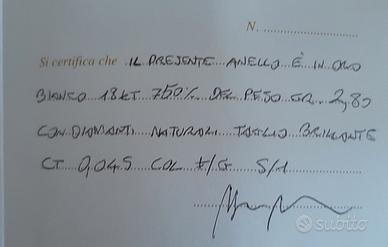 N. ..............................
Si certifica che IL PRESENTE ANELLO È IN ORO
BIANCO 18KT 750‰ DEL PESO GR. 2,80
CON DIAMANTI NATURALI TAGLIO BRILLANTE
CT 0,045 COL F/G S/1
subito